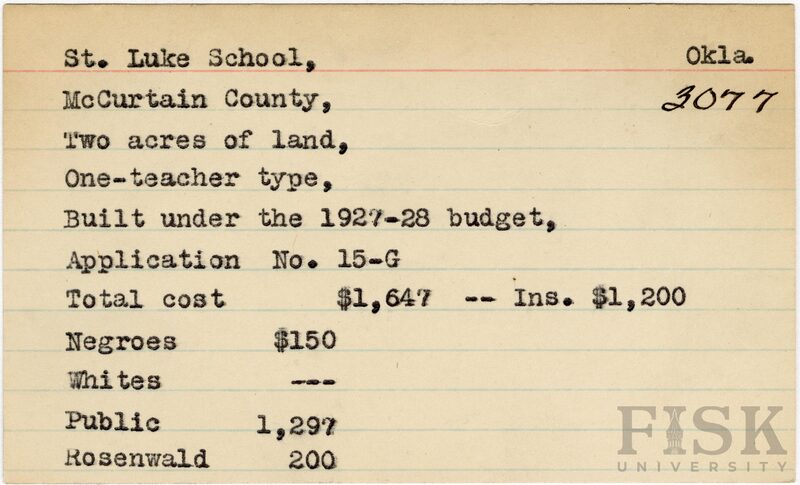 St. Luke School, Okla.
McCurtain County, 3077
Two acres of land,
One-teacher type,
Built under the 1927-28 budget,
Application No. 15-G
Total cost $1,647 -- Ins. $1,200
Negroes $150
Whites ---
Public 1,297
Rosenwald 200
FISK
UNIVERSITY